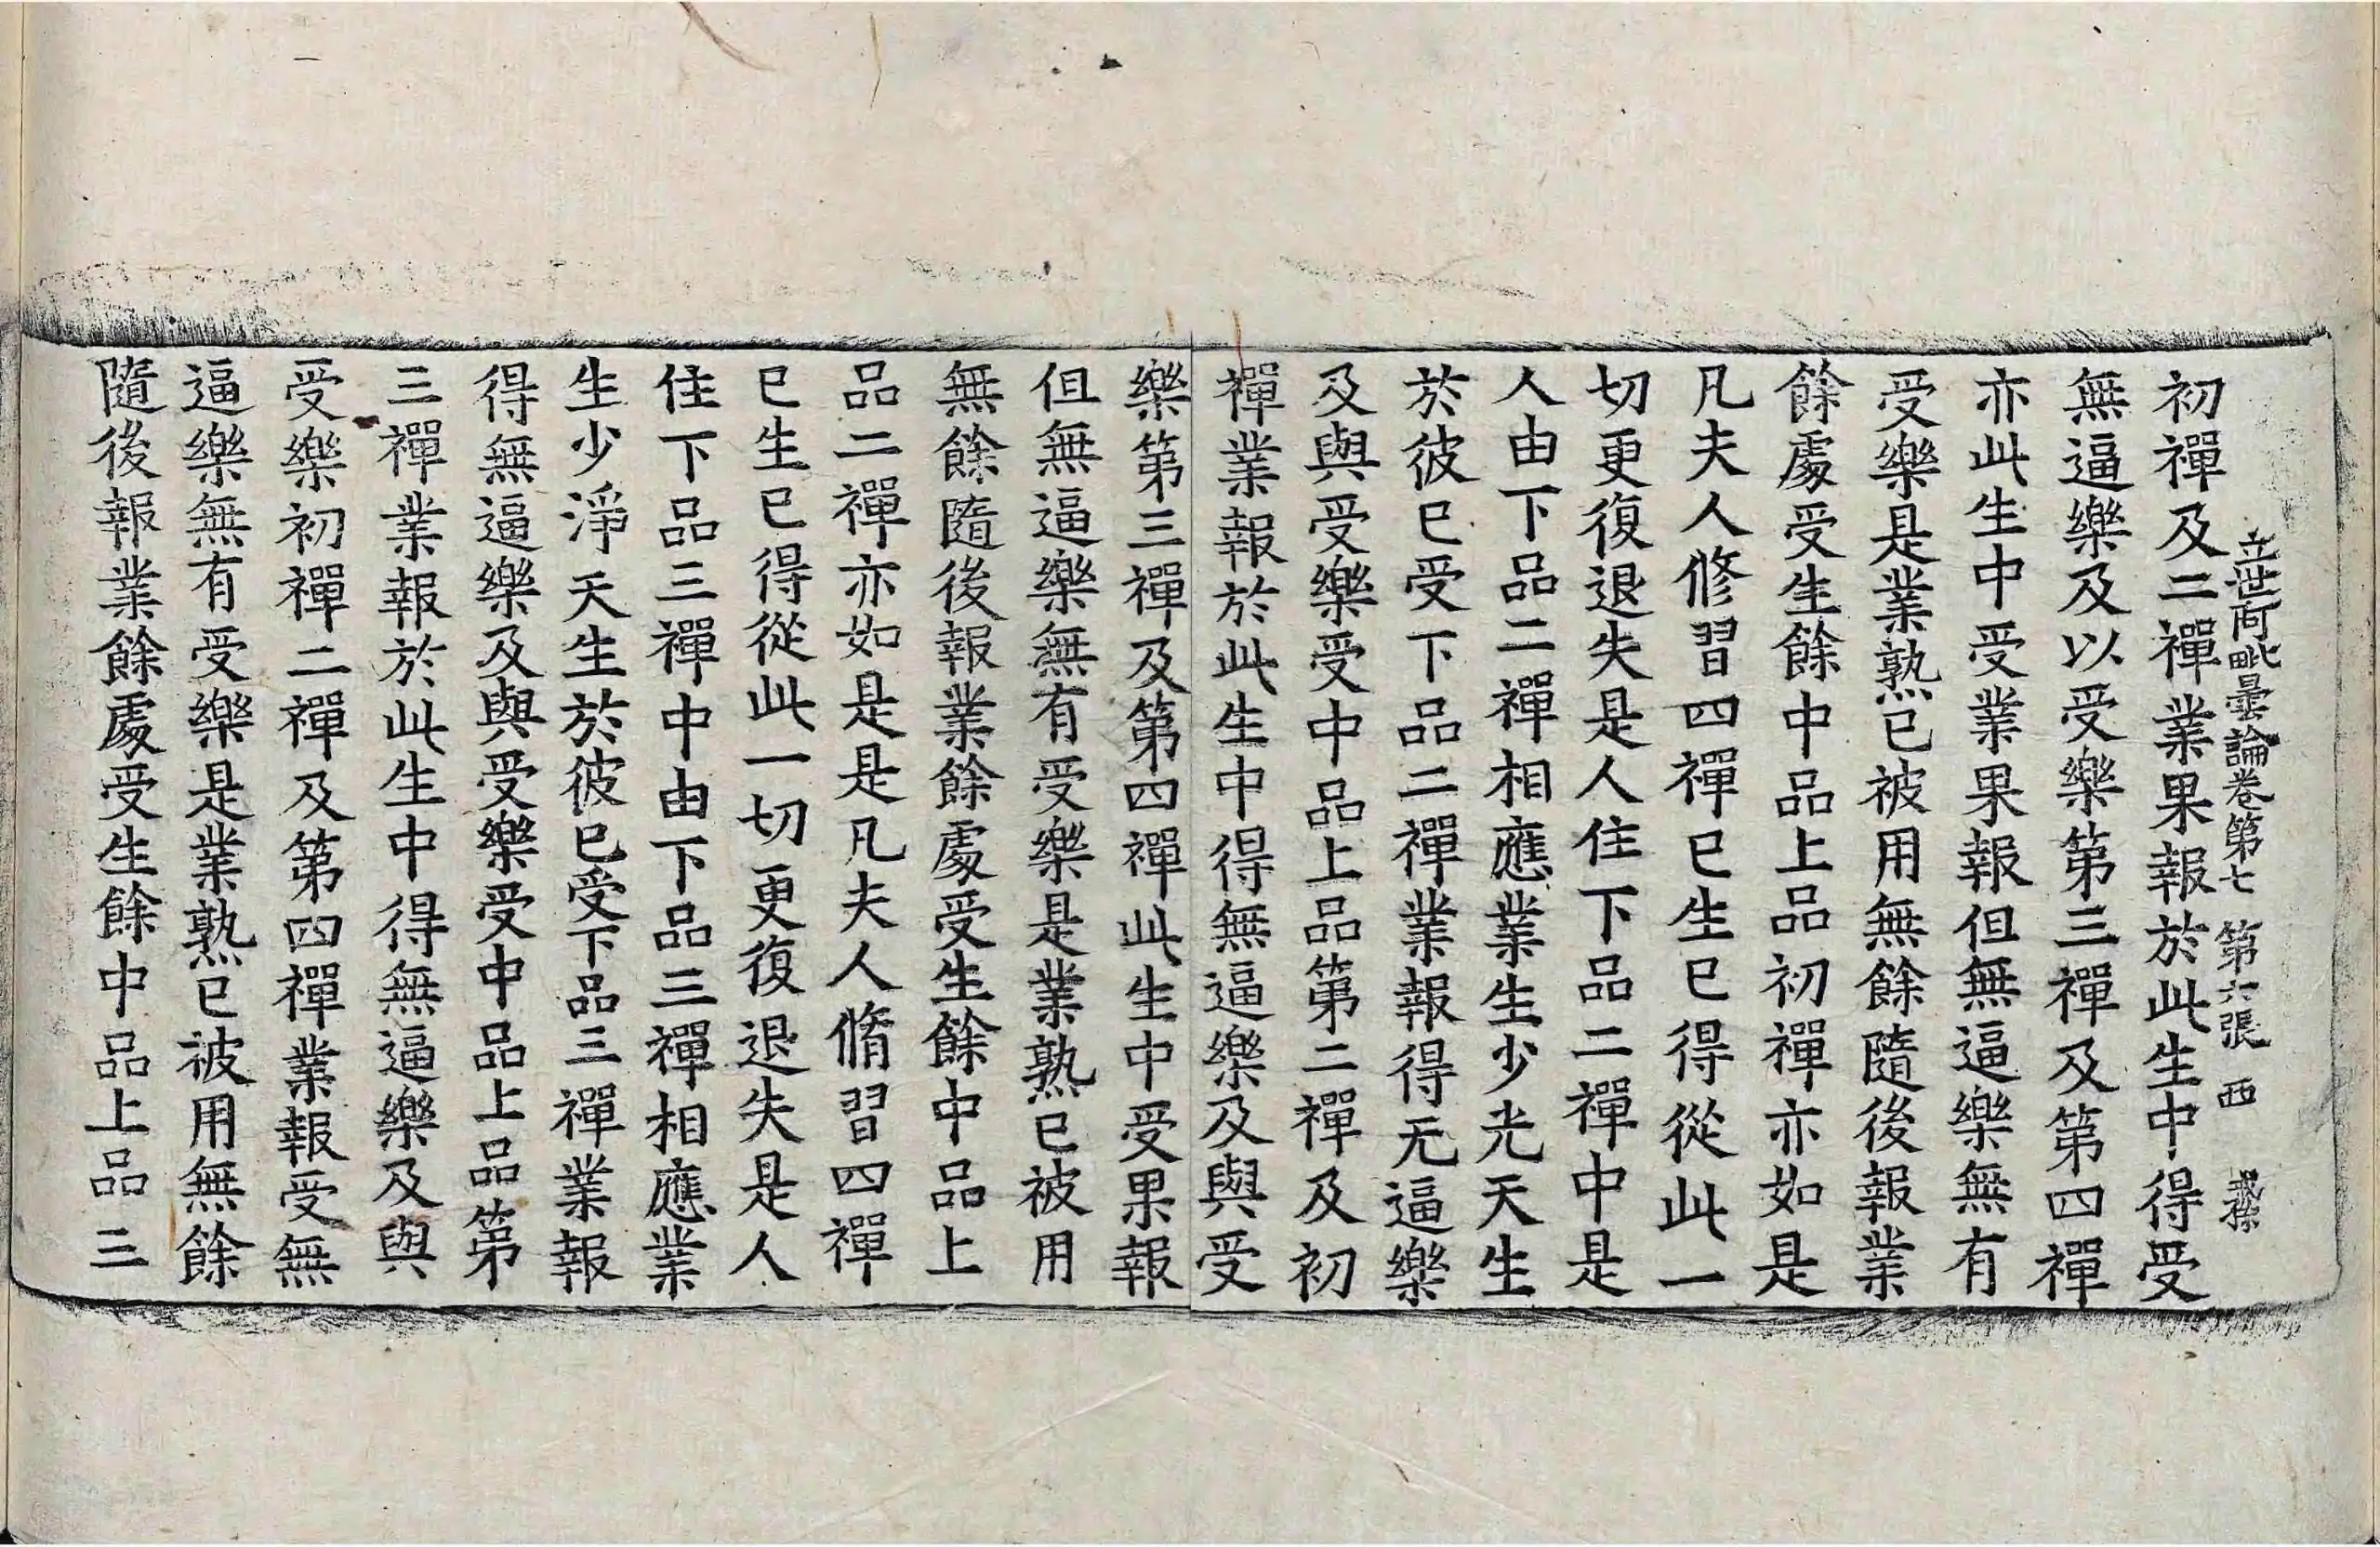 立世阿毗曇論卷第七 第六張 西
初禪及二禪業果報於此生中得受
無逼樂及以受樂第三禪及第四禪
亦此生中受業果報但無逼樂無有
受樂是業熟已被用無餘隨後報業
餘處受生餘中品上品初禪亦如是
凡夫人修習四禪已生已得從此一
切更復退失是人住下品二禪中是
人由下品二禪相應業生少光天生
於彼已受下品二禪業報得无逼樂
及與受樂受中品上品第二禪及初
禪業報於此生中得無逼樂及與受
樂第三禪及第四禪此生中受果報
但無逼樂無有受樂是業熟已被用
無餘隨後報業餘處受生餘中品上
品二禪亦如是是凡夫人脩習四禪
已生已得從此一切更復退失是人
住下品三禪中由下品三禪相應業
生少淨天生於彼已受下品三禪業報
得無逼樂及與受樂受中品上品第
三禪業報於此生中得無逼樂及與
受樂初禪二禪及第四禪業報受無
逼樂無有受樂是業熟已被用無餘
隨後報業餘處受生餘中品上品三